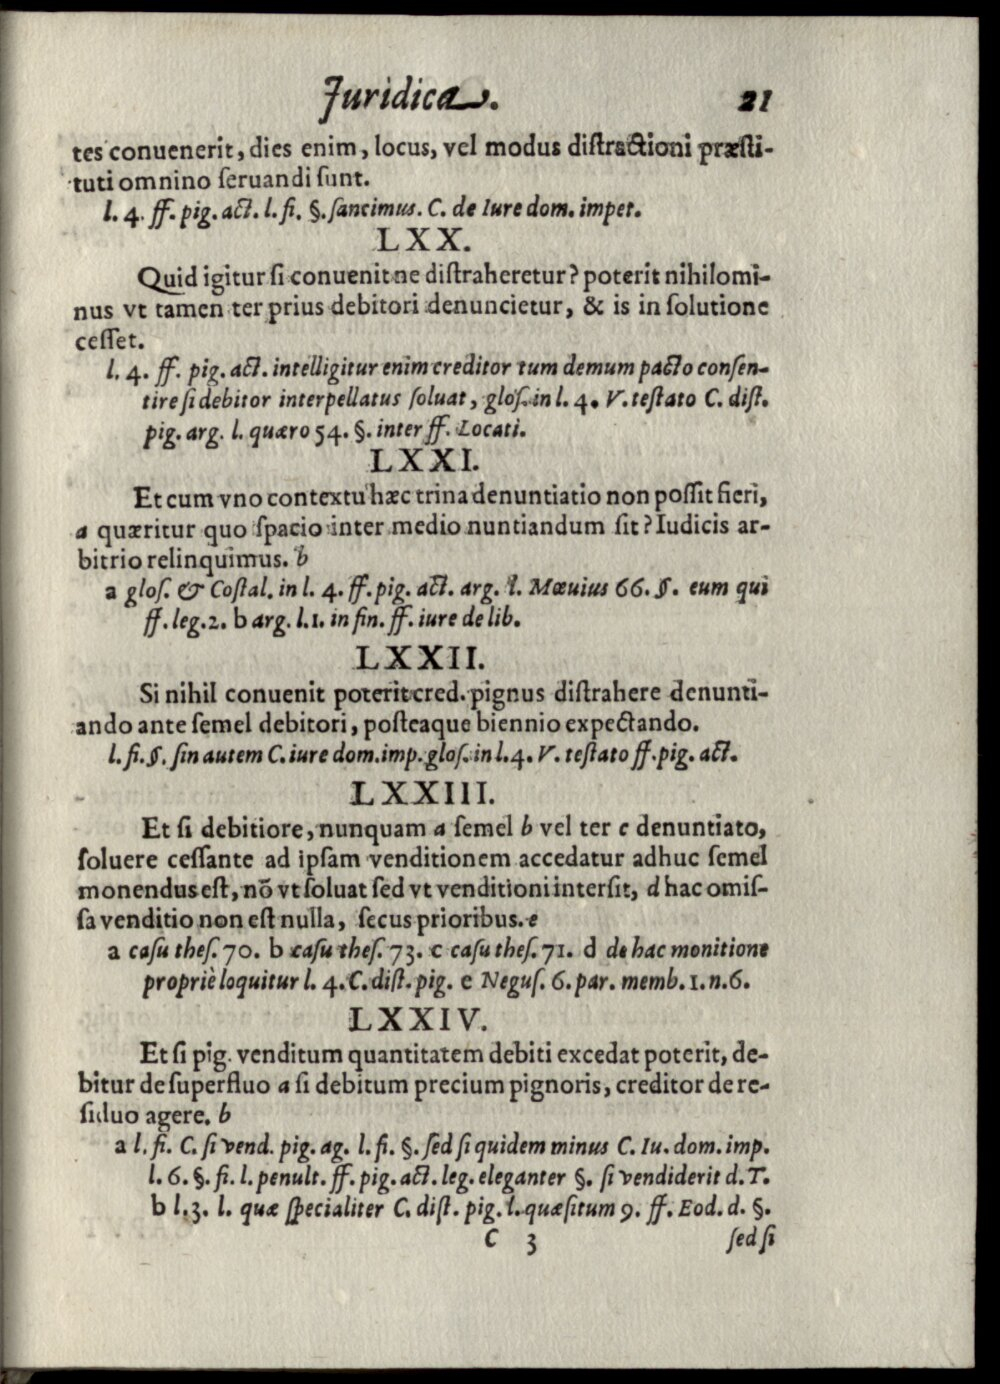 Juridica. 21
tes conuenerit, dies enim, locus, vel modus distractioni præsti-
tuti omnino seruandi sunt.
l. 4. ff. pig. act. l. fi. §. sancimus. C. de Iure dom. impet.
LXX.
Quid igitur si conuenit ne distraheretur? poterit nihilomi-
nus vt tamen ter prius debitori denuncietur, & is in solutione
cesset.
l. 4. ff. pig. act. intelligitur enim creditor tum demum pacto consen-
tire si debitor interpellatus soluat, glos. in l. 4. V. testato C. dist.
pig. arg. l. quæro 54. §. inter ff. Locati.
LXXI.
Et cum vno contextu hæc trina denuntiatio non possit fieri,
a quæritur quo spacio inter medio nuntiandum sit? Iudicis ar-
bitrio relinquimus. b
a glos. & Costal. in l. 4. ff. pig. act. arg. l. Mæuius 66. §. eum qui
ff. leg. 2. b arg. l. 1. in fin. ff. iure de lib.
LXXII.
Si nihil conuenit poterit cred. pignus distrahere denunti-
ando ante semel debitori, posteaque biennio expectando.
l. fi. §. sin autem C. iure dom. imp. glos. in l. 4. V. testato ff. pig. act.
LXXIII.
Et si debitiore, nunquam a semel b vel ter c denuntiato,
soluere cessante ad ipsam venditionem accedatur adhuc semel
monendus est, nõ vt soluat sed vt venditioni intersit, d hac omis-
sa venditio non est nulla, secus prioribus. e
a casu thes. 70. b casu thes. 73. c casu thes. 71. d de hac monitione
propriè loquitur l. 4. C. dist. pig. e Negus. 6. par. memb. 1. n. 6.
LXXIV.
Et si pig. venditum quantitatem debiti excedat poterit, de-
bitur de superfluo a si debitum precium pignoris, creditor de re-
siduo agere. b
a l. fi. C. si vend. pig. ag. l. fi. §. sed si quidem minus C. Iu. dom. imp.
l. 6. §. fi. l. penult. ff. pig. act. leg. eleganter §. si vendiderit d. T.
b l. 3. l. quæ specialiter C. dist. pig. l. quæsitum 9. ff. Eod. d. §.
C 3 sed si